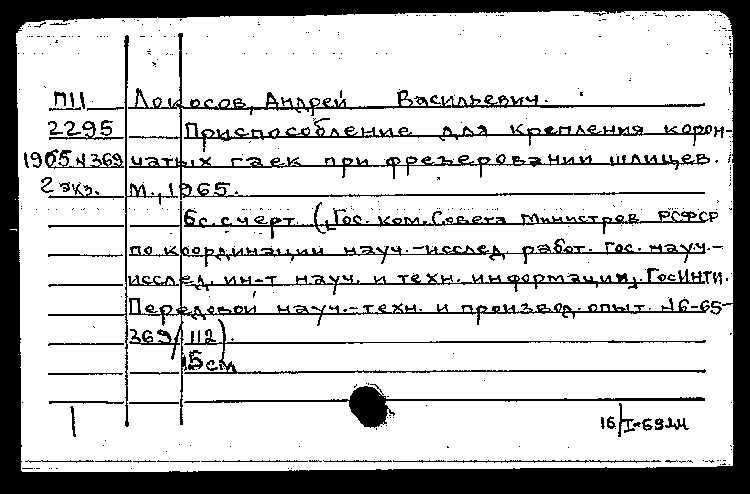 ПII Локосов, Андрей Васильевич.
2295 Приспособление для крепления корон-
1965 N 369 чатых гаек при фрезеровании шлицев.
2 экз. М., 1965.
6с. с черт. (Гос. ком. Совета Министров РСФСР
по координации науч.-исслед. работ. Гос. науч.-
исслед. ин-т науч. и техн. информации. ГосИНТИ.
Передовой науч.-техн. и производ. опыт. 16-65-
369/112).
15 см
16/I-69